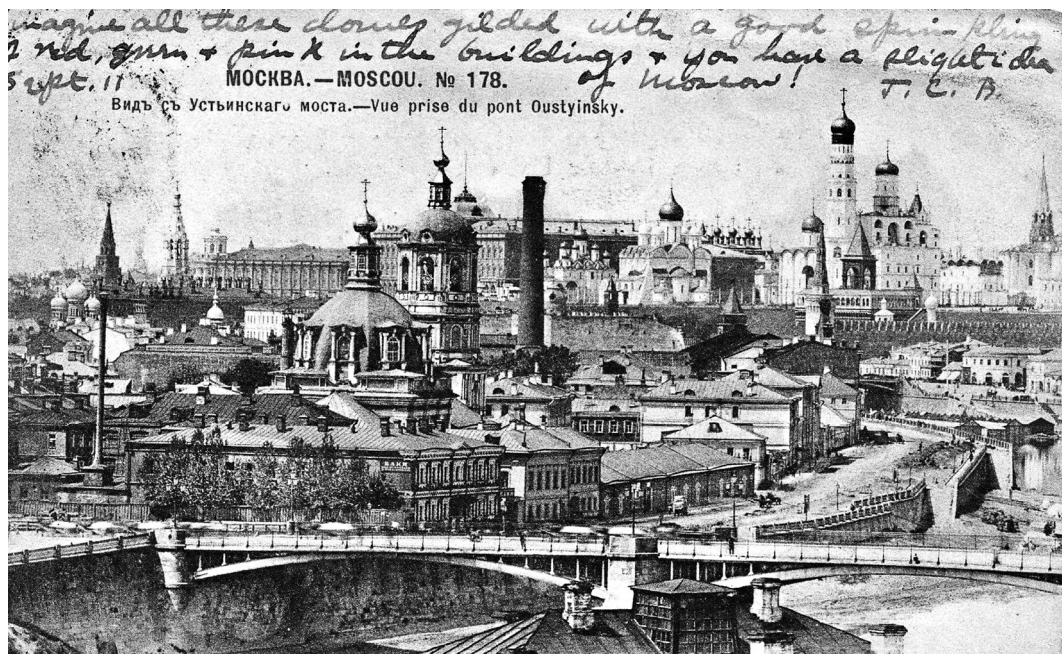 imagine all these domes gilded with a good sprinkling
red, green + pink in the buildings + you have a slight idea
Sept. 11 of Moscow! T. C. B.
МОСКВА.—MOSCOU. № 178.
Видъ съ Устьинскаго моста.—Vue prise du pont Oustyinsky.